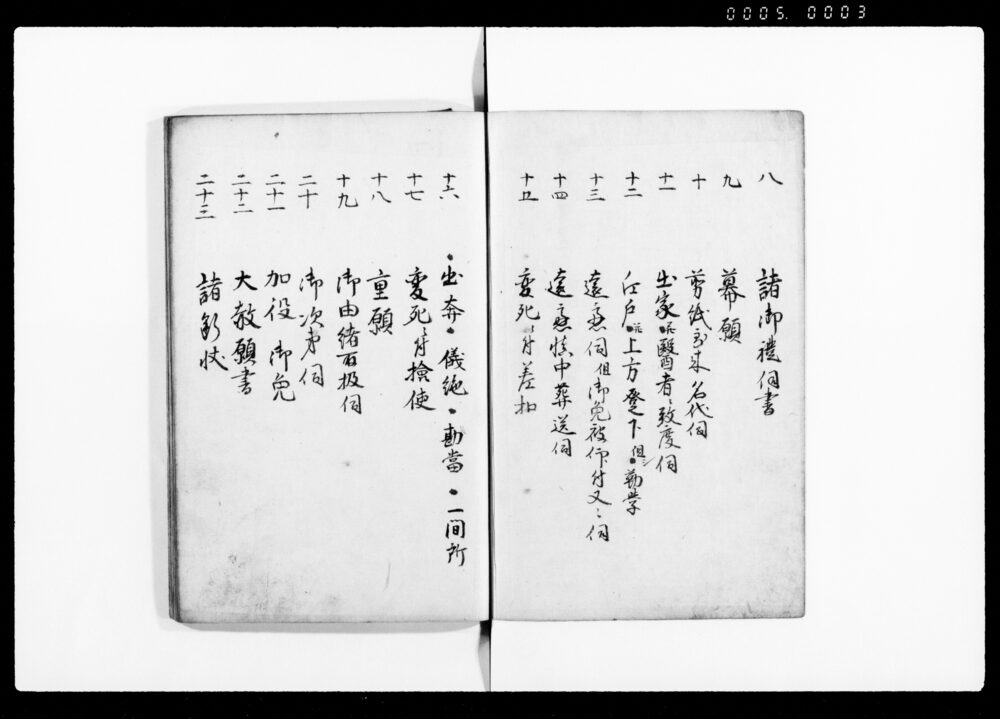 0005. 0003
八 諸御禮伺書
九 幕願
十 剪紙出来名代伺
十一 出家或醫者ニ致度伺
十二 江戸或上方登下 但シ勤学
十三 遠慮伺 但御免被仰付又ニ伺
十四 遠慮慎中葬送伺
十五 変死ニ付差扣
十六 出奔・儀絶・勘當・一間所
十七 変死ニ付撿使
十八 重願
十九 御由緒 扱伺
二十 御次第伺
二十一 加役御免
二十二 大赦願書
二十三 諸 状